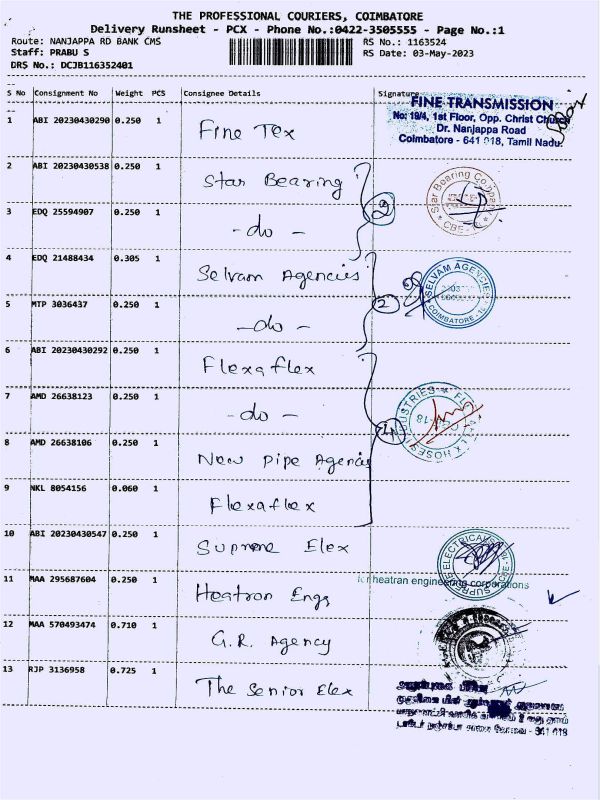 THE PROFESSIONAL COURIERS, COIMBATORE
Delivery Runsheet - PCX - Phone No.:0422-3505555 - Page No.:1
Route: NANJAPPA RD BANK CMS
RS No.: 1163524
Staff: PRABU S
RS Date: 03-May-2023
DRS No.: DCJB116352401
S No Consignment No Weight PCS Consignee Details Signature
1 ABI 20230430290 0.250 1 Fine Tex
FINE TRANSMISSION
No: 19/4, 1st Floor, Opp. Christ Church
Dr. Nanjappa Road
Coimbatore - 641 018, Tamil Nadu.
2 ABI 20230430538 0.250 1 Star Bearing
3 EDQ 25594907 0.250 1 -do-
2
Star Bearing Company
CBE
4 EDQ 21488434 0.305 1 Selvam Agencies
5 MTP 3036437 0.250 1 -do-
2
SELVAM AGENCIES
COIMBATORE
6 ABI 20230430292 0.250 1 Flexaflex
7 AMD 26638123 0.250 1 -do-
8 AMD 26638106 0.250 1 New Pipe Agencies
9 NKL 8054156 0.060 1 Flexaflex
4
HOSES INDUSTRIES
10 ABI 20230430547 0.250 1 Supreme Elex
SUPREME ELECTRICALS
11 MAA 295687604 0.250 1 Heatron Engs
for heatran engineering corporations
12 MAA 570493474 0.710 1 G.R. Agency
13 RJP 3136958 0.725 1 The Senior Elex
641 018